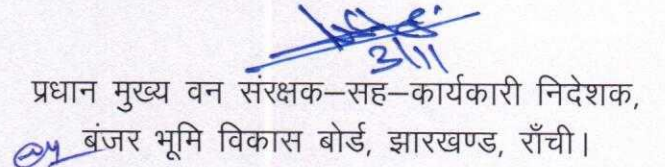 3/11
प्रधान मुख्य वन संरक्षक–सह–कार्यकारी निदेशक,
बंजर भूमि विकास बोर्ड, झारखण्ड, राँची।